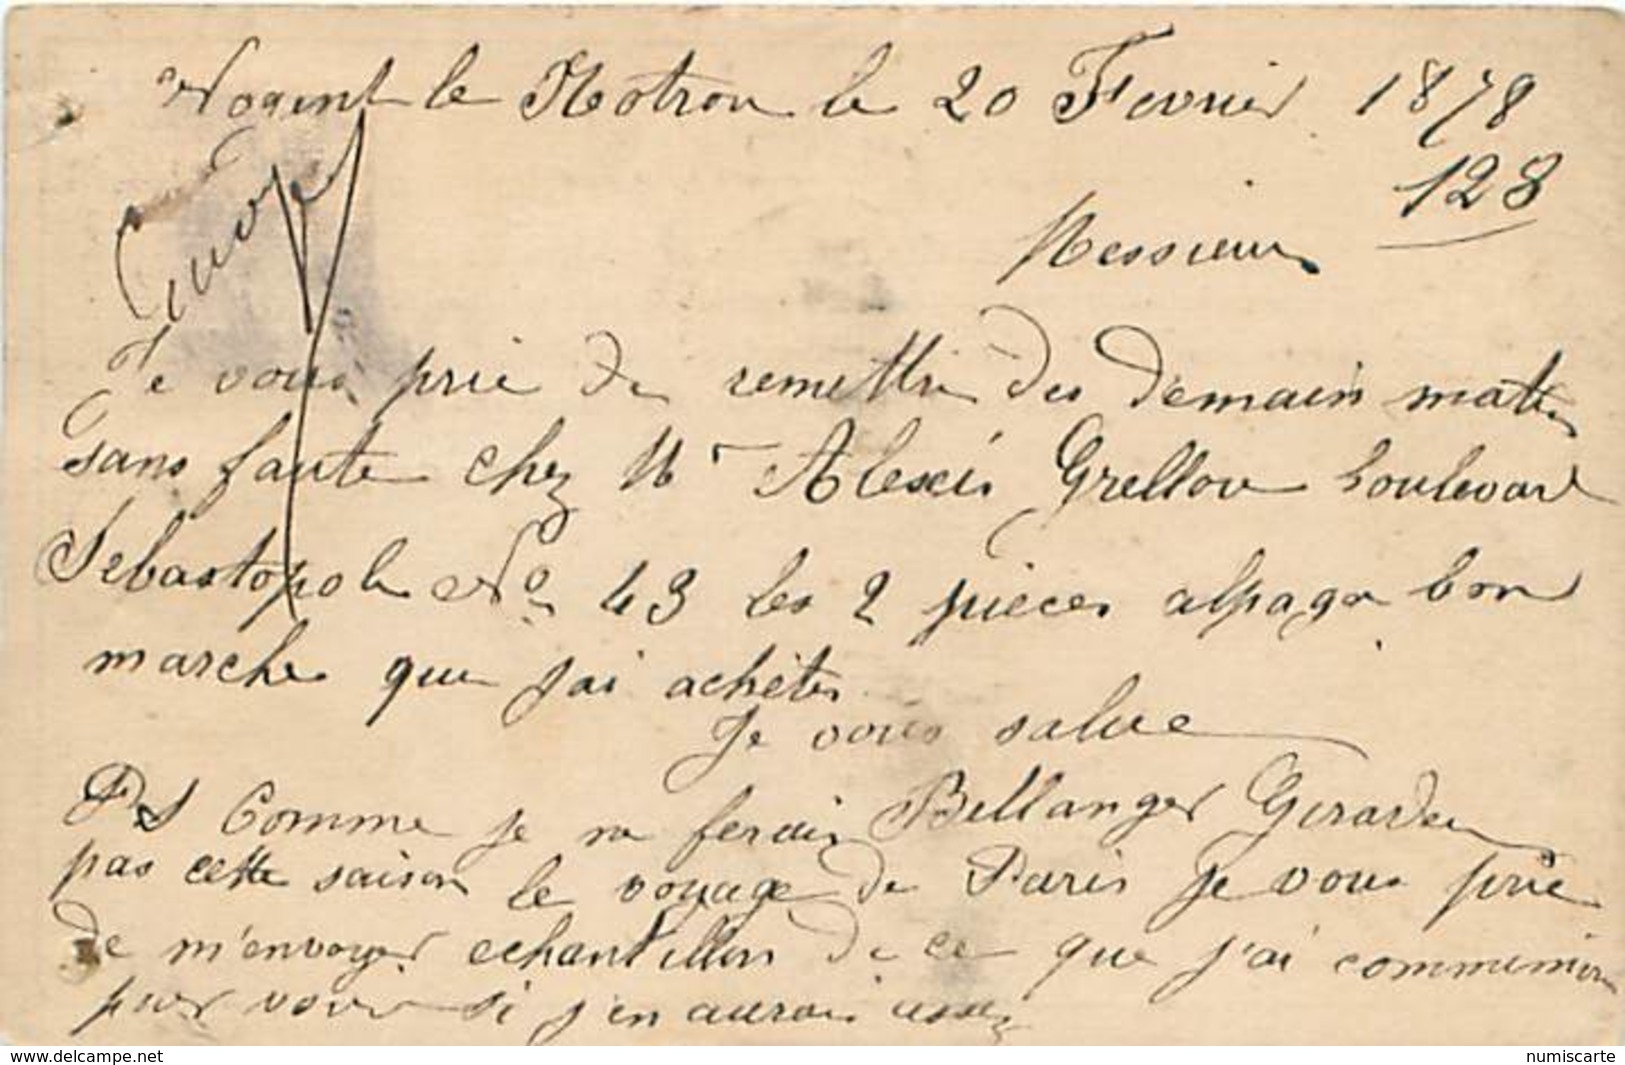 Nogent le Rotrou le 20 Fevrier 1878
128
Envoyé
Messieurs
Je vous prie de remettre des demain matin
sans faute chez Mr Alexis Grellou boulevard
Sebastopole No 43 les 2 pieces alpaga bon
marche que j'ai achetes
Je vous salue
Bellanger Girardeau
PS Comme je ne ferais
pas cette saison le voyage de Paris je vous prie
de m'envoyer echantillon de ce que j'ai
pour voir si j'en aurai assez
www.delcampe.net
numiscarte